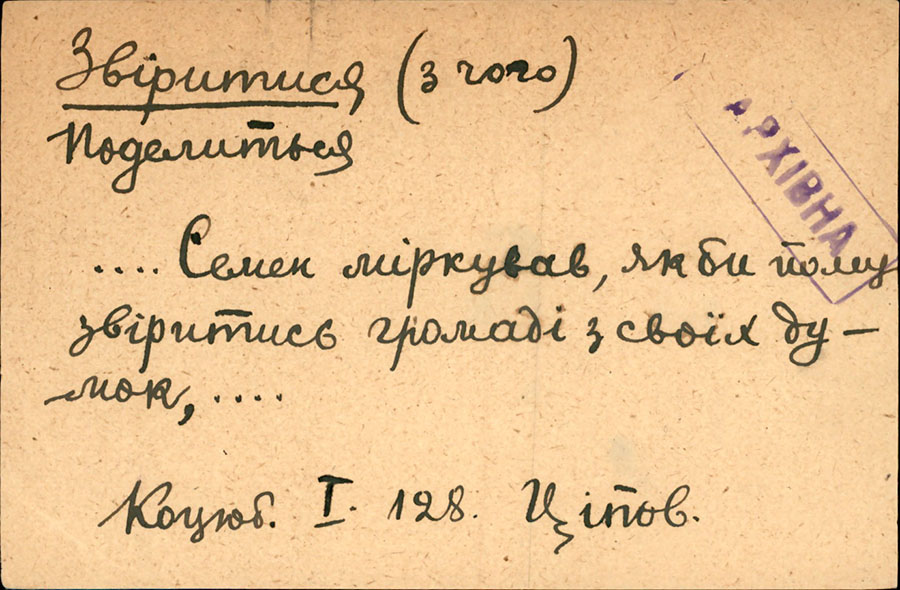 Звіритися (з чого)
Поделиться
АРХІВНА
.... Семен міркував, якби йому
звіритись громаді з своїх ду-
мок, ....
Коцюб. I. 128. Ціпов.